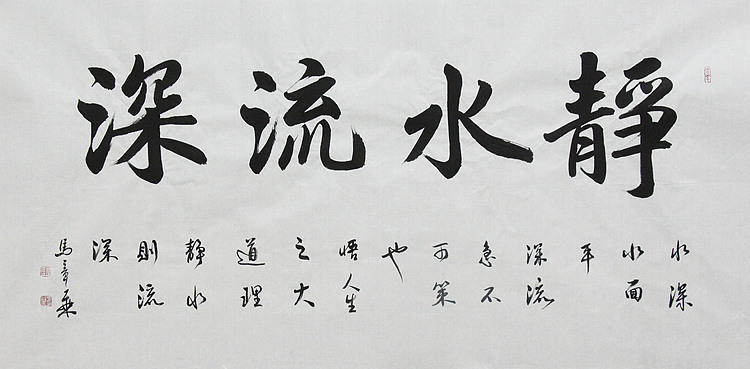 靜水流深
水深
水面
平
深流
急不
可策
也
悟人生
之大
道理
靜水
則流
深
馬章乘